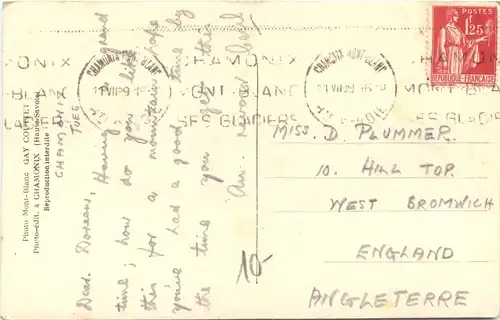 CHAMONIX
TUES
Dear Doreen, Having a grand
time; how do you like
this for a mountain; hope
you've had a good time by
the time you get this
Au revoir
MISS. D. PLUMMER.
10. HILL TOP.
WEST BROMWICH
ENGLAND
ANGLETERRE
10-
POSTES
1F25
RÉPUBLIQUE FRANÇAISE
CHAMONIX MONT-BLANC
CHAMONIX MONT-BLANC
CHAMONIX
MONT-BLANC
SES GLACIERS
Photo Mont-Blanc GAY COUTTET
Photo-édit. à CHAMONIX (Haute-Savoie)
Reproduction interdite